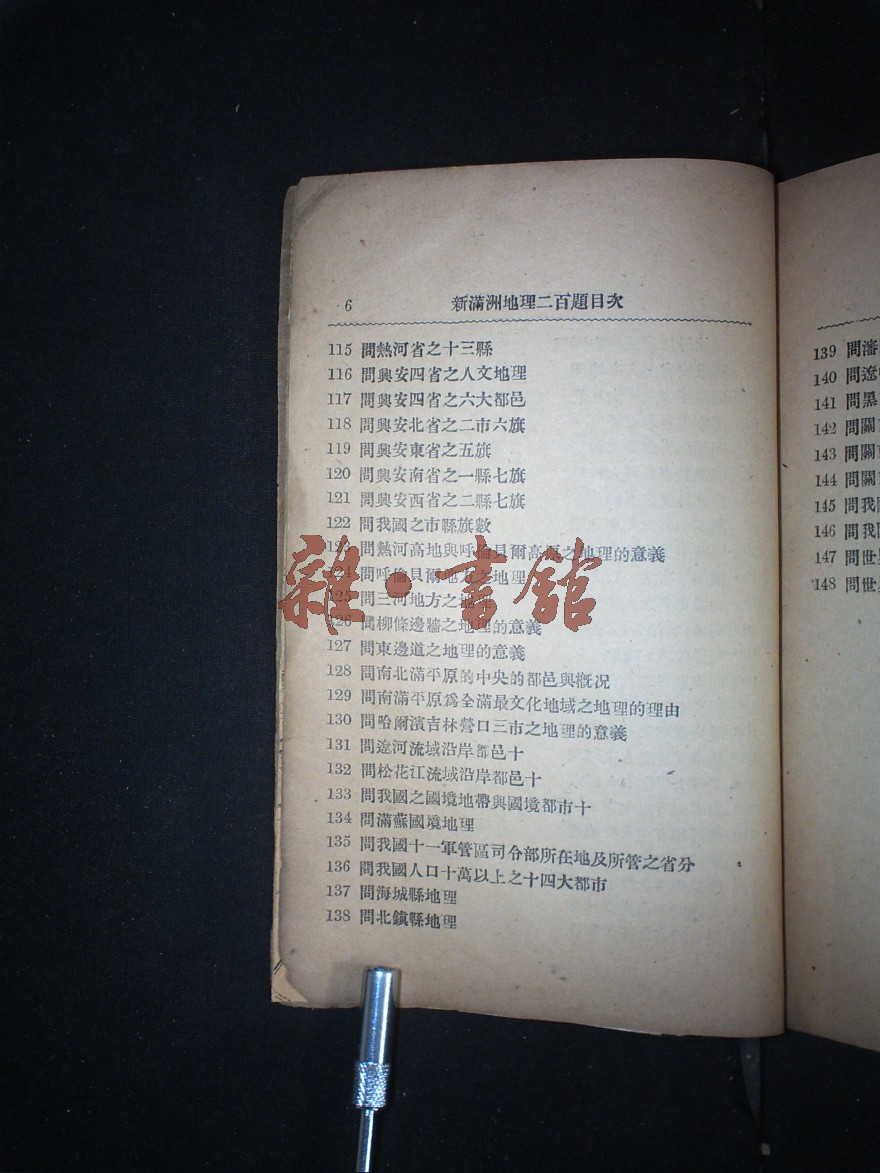 6 新滿洲地理二百題目次
115 問熱河省之十三縣
116 問興安四省之人文地理
117 問興安四省之六大都邑
118 問興安北省之二市六旗
119 問興安東省之五旗
120 問興安南省之一縣七旗
121 問興安西省之二縣七旗
122 問我國之市縣旗數
123 問熱河高地與呼倫貝爾高原之地理的意義
124 問呼倫貝爾地方之地理
125 問三河地方之地理
126 問柳條邊牆之地理的意義
127 問東邊道之地理的意義
128 問南北滿平原的中央的都邑與槪况
129 問南滿平原爲全滿最文化地域之地理的理由
130 問哈爾濱吉林營口三市之地理的意義
131 問遼河流域沿岸都邑十
132 問松花江流域沿岸都邑十
133 問我國之國境地帶與國境都市十
134 問滿蘇國境地理
135 問我國十一軍管區司令部所在地及所管之省分
136 問我國人口十萬以上之十四大都市
137 問海城縣地理
138 問北鎭縣地理
雜·書館
139 問瀋
140 問遼
141 問黑
142 問關
143 問關
144 問關
145 問我
146 問我
147 問世
148 問世